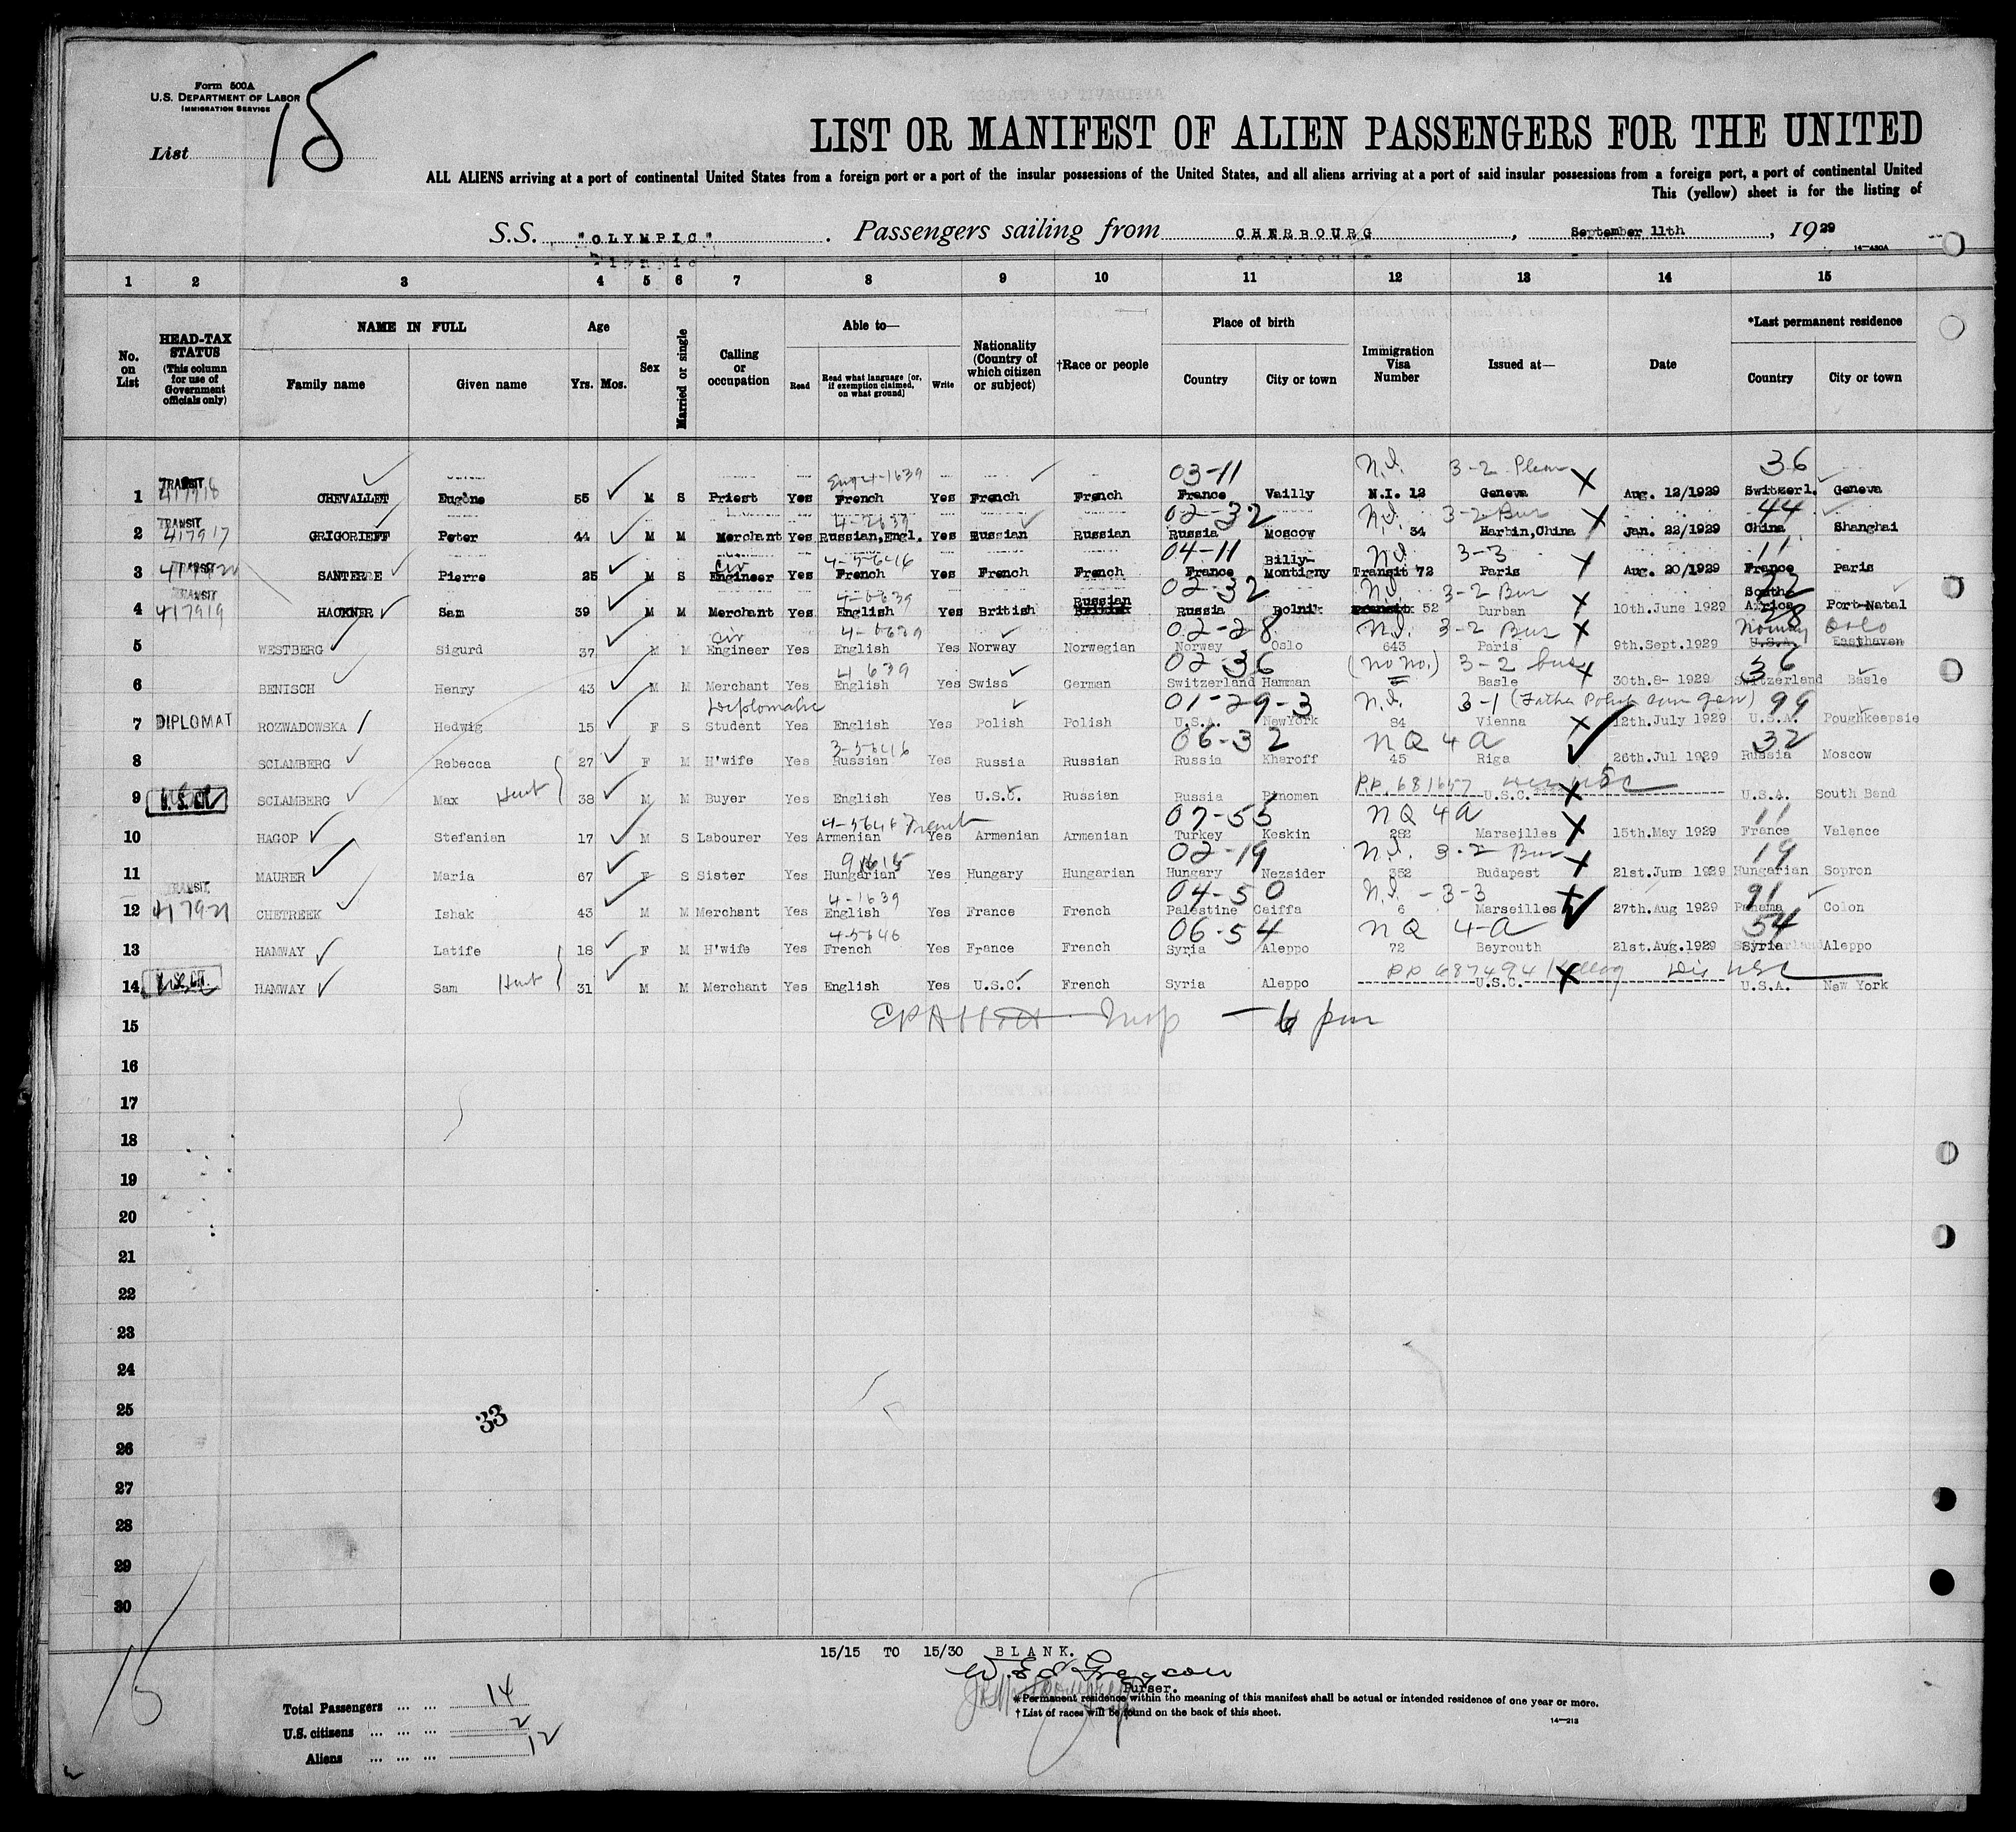 Form 500A
U.S. DEPARTMENT OF LABOR
IMMIGRATION SERVICE
List 15
LIST OR MANIFEST OF ALIEN PASSENGERS FOR THE UNITED
ALL ALIENS arriving at a port of continental United States from a foreign port or a port of the insular possessions of the United States, and all aliens arriving at a port of said insular possessions from a foreign port, a port of continental United
This (yellow) sheet is for the listing of
S.S. "OLYMPIC". Passengers sailing from CHERBOURG, September 11th, 1929
14—480A
1 2 3 4 5 6 7 8 9 10 11 12 13 14 15
No. on List
HEAD-TAX STATUS (This column for use of Government officials only)
NAME IN FULL
Family name Given name
Age
Yrs. Mos.
Sex
Married or single
Calling or occupation
Able to—
Read Read what language [or, if exemption claimed, on what ground] Write
Nationality (Country of which citizen or subject)
†Race or people
Place of birth
Country City or town
Immigration Visa Number
Issued at—
Date
*Last permanent residence
Country City or town
03-11 N.I. 3-2 36
1 TRANSIT 417918 CHEVALLET Eugène 55 M S Priest Yes French Yes French French France Vailly N.I. 12 Geneva Aug. 12/1929 Switzerl. Geneva
02-32 N.I. 3-2 Bus 44
2 TRANSIT 417917 GRIGORIEFF Peter 44 M M Merchant Yes Russian, Engl. Yes Russian Russian Russia Moscow 34 Harbin, China Jan. 22/1929 China Shanghai
Civ 04-11 N.I. 3-3 11
3 TRANSIT SANTERRE Pierre 25 M S Engineer Yes French Yes French French France Billy-Montigny Transit 72 Paris Aug. 20/1929 France Paris
02-32 N.I. 3-2 Bus 22
4 TRANSIT 417919 HACKNER Sam 39 M M Merchant Yes English Yes British Russian British Russia Dolnik Transit 52 Durban 10th. June 1929 South Africa Port-Natal
Civ 02-28 N.I. 3-2 Bus 28 Norway Oslo
5 WESTBERG Sigurd 37 M M Engineer Yes English Yes Norway Norwegian Norway Oslo 643 Paris 9th. Sept. 1929 U.S.A. Easthaven
02-36 (no no.) 3-2 bus 36
6 BENISCH Henry 43 M M Merchant Yes English Yes Swiss German Switzerland Hamman Basle 30th. 8- 1929 Switzerland Basle
Diplomatic 01-29-3 N.I. 3-1 (Father Polish con gen) 99
7 DIPLOMAT ROZWADOWSKA Hedwig 15 F S Student Yes English Yes Polish Polish U.S.A. NewYork 84 Vienna 12th. July 1929 U.S.A. Poughkeepsie
3-5646 06-32 NQ 4a 32
8 SCLAMBERG Rebecca 27 F M H'wife Yes Russian Yes Russia Russian Russia Kharoff 45 Riga 26th. Jul 1929 Russia Moscow
P.P. 681657 USC
9 U.S. CIT. SCLAMBERG Max 38 M M Buyer Yes English Yes U.S.C. Russian Russia Pinomen U.S.C. U.S.A. South Bend
French 07-55 NQ 4a 11
10 HAGOP Stefanian 17 M S Labourer Yes Armenian Yes Armenian Armenian Turkey Keskin 282 Marseilles 15th. May 1929 France Valence
02-19 N.I. 3-2 Bus 19
11 MAURER Maria 67 F S Sister Yes Hungarian Yes Hungary Hungarian Hungary Nezsider 352 Budapest 21st. June 1929 Hungarian Sopron
4-1639 04-50 N.I. - 3-3 91
12 TRANSIT 417921 CHETREEK Ishak 43 M M Merchant Yes English Yes France French Palestine Caiffa 6 Marseilles 27th. Aug 1929 Panama Colon
4-5646 06-54 NQ 4-a 54
13 HAMWAY Latife 18 F M H'wife Yes French Yes France French Syria Aleppo 72 Beyrouth 21st. Aug. 1929 Syria Aleppo
PP 687494 USC
14 U.S. CIT. HAMWAY Sam 31 M M Merchant Yes English Yes U.S.C. French Syria Aleppo U.S.C. U.S.A. New York
15
16
17
18
19
20
21
22
23
24
25
33
26
27
28
29
30
15
15/15 TO 15/30 BLANK.
Purser.
Total Passengers 14
U.S. citizens 2
Aliens 12
*Permanent residence within the meaning of this manifest shall be actual or intended residence of one year or more.
†List of races will be found on the back of this sheet.
14—213